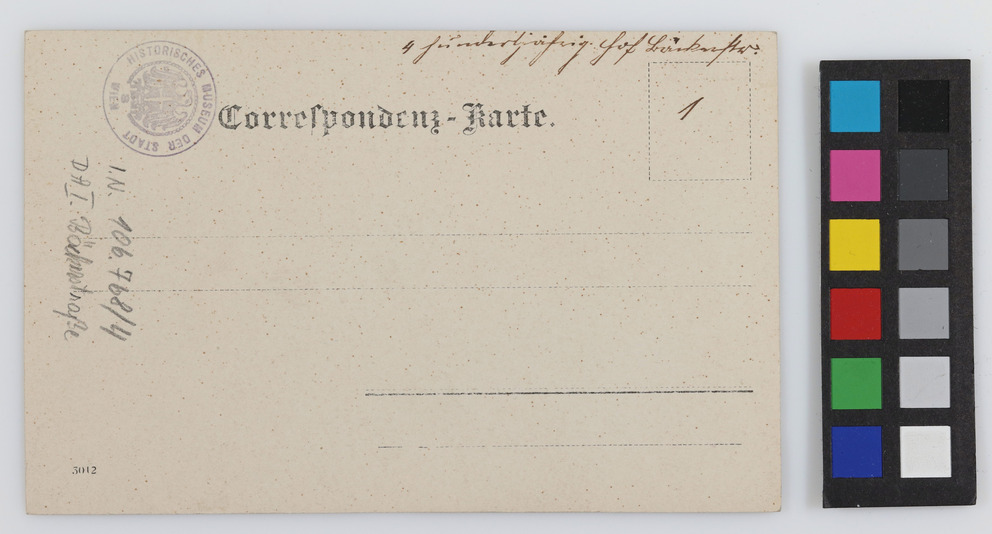 4 hundertjährig. Hof Bäckerstr.
HISTORISCHES MUSEUM DER STADT WIEN
1
Correspondenz-Karte.
I.N. 106.768/4
D.A I. Bäckerstraße
3042